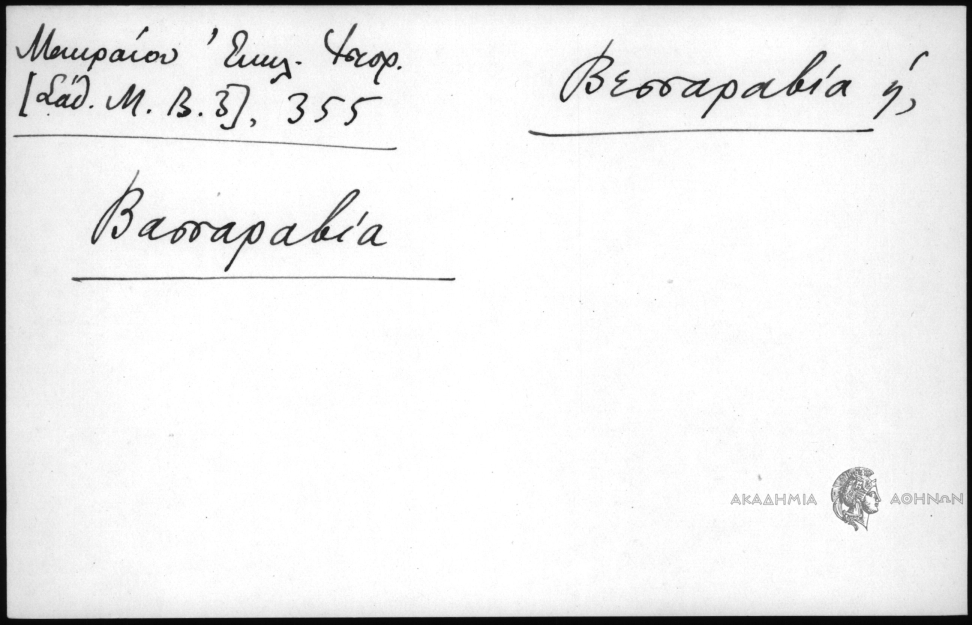 Μακραίου Ἐκκλ. Ἱστορ.
[Σάθ. Μ. Β. 3], 355
Βεσσαραβία ἡ,
Βασσαραβία
ΑΚΑΔΗΜΙΑ ΑΘΗΝΩΝ